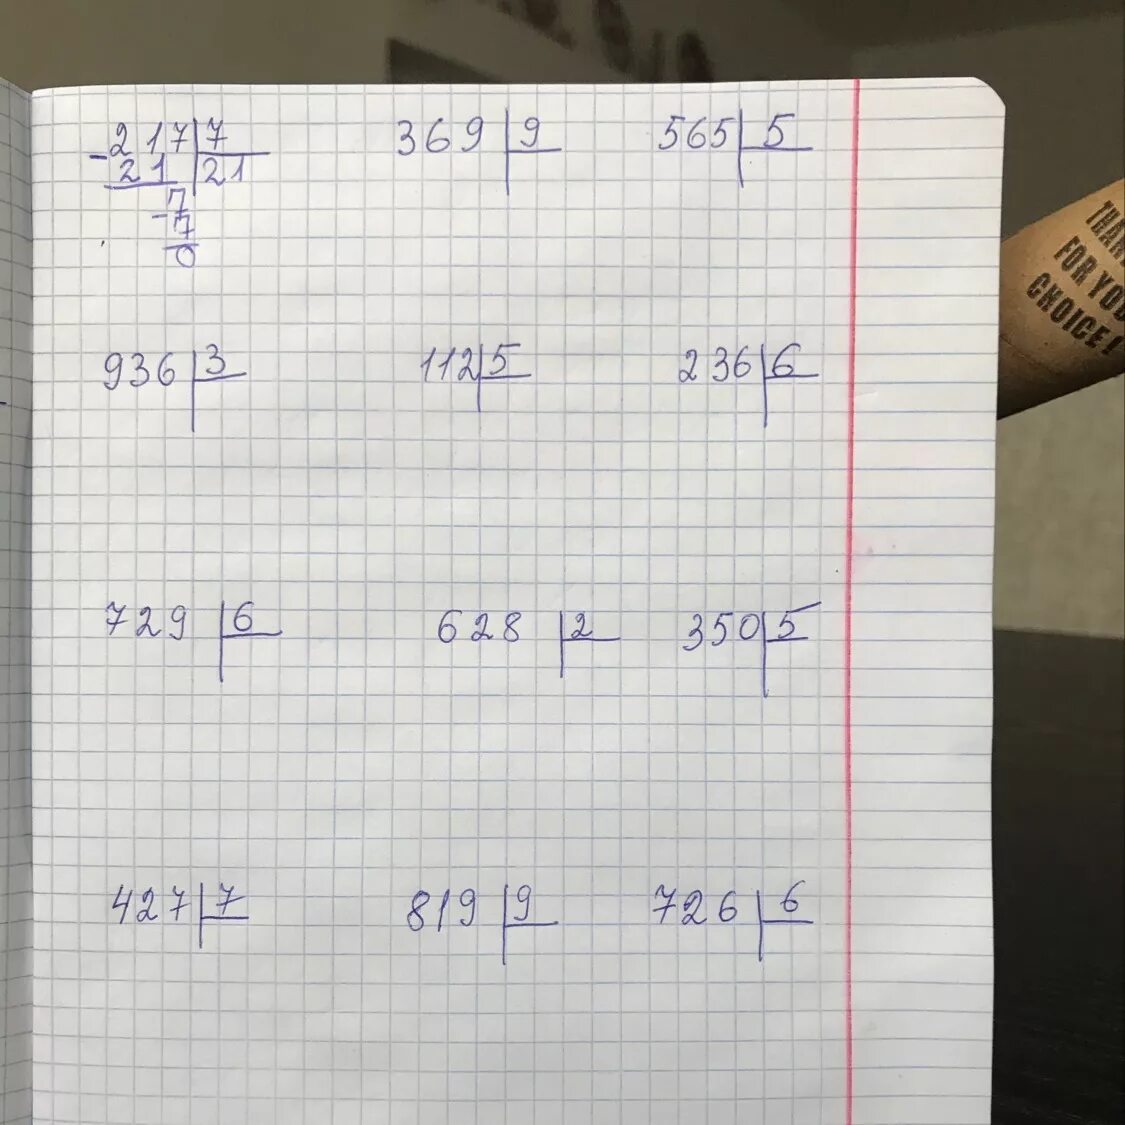 217 | 7    369 | 9    565 | 5
- 21 | 21
- 7
7
0
936 | 3    112 | 5    236 | 6
729 | 6    628 | 2    350 | 5
427 | 7    819 | 9    726 | 6
THAN
FOR YOU
CHOICE!